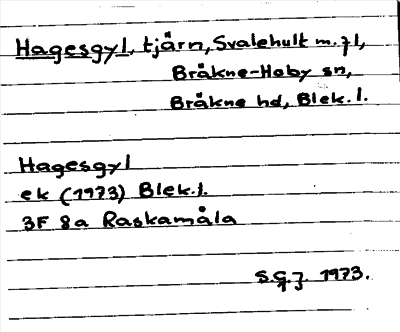 Hagesgyl, tjärn, Svalehult m.fl,
Bräkne-Hoby sn,
Bräkne hd, Blek.l.
Hagesgyl
ek (1973) Blek.l.
3F 8a Raskamåla
S.G.J. 1973.